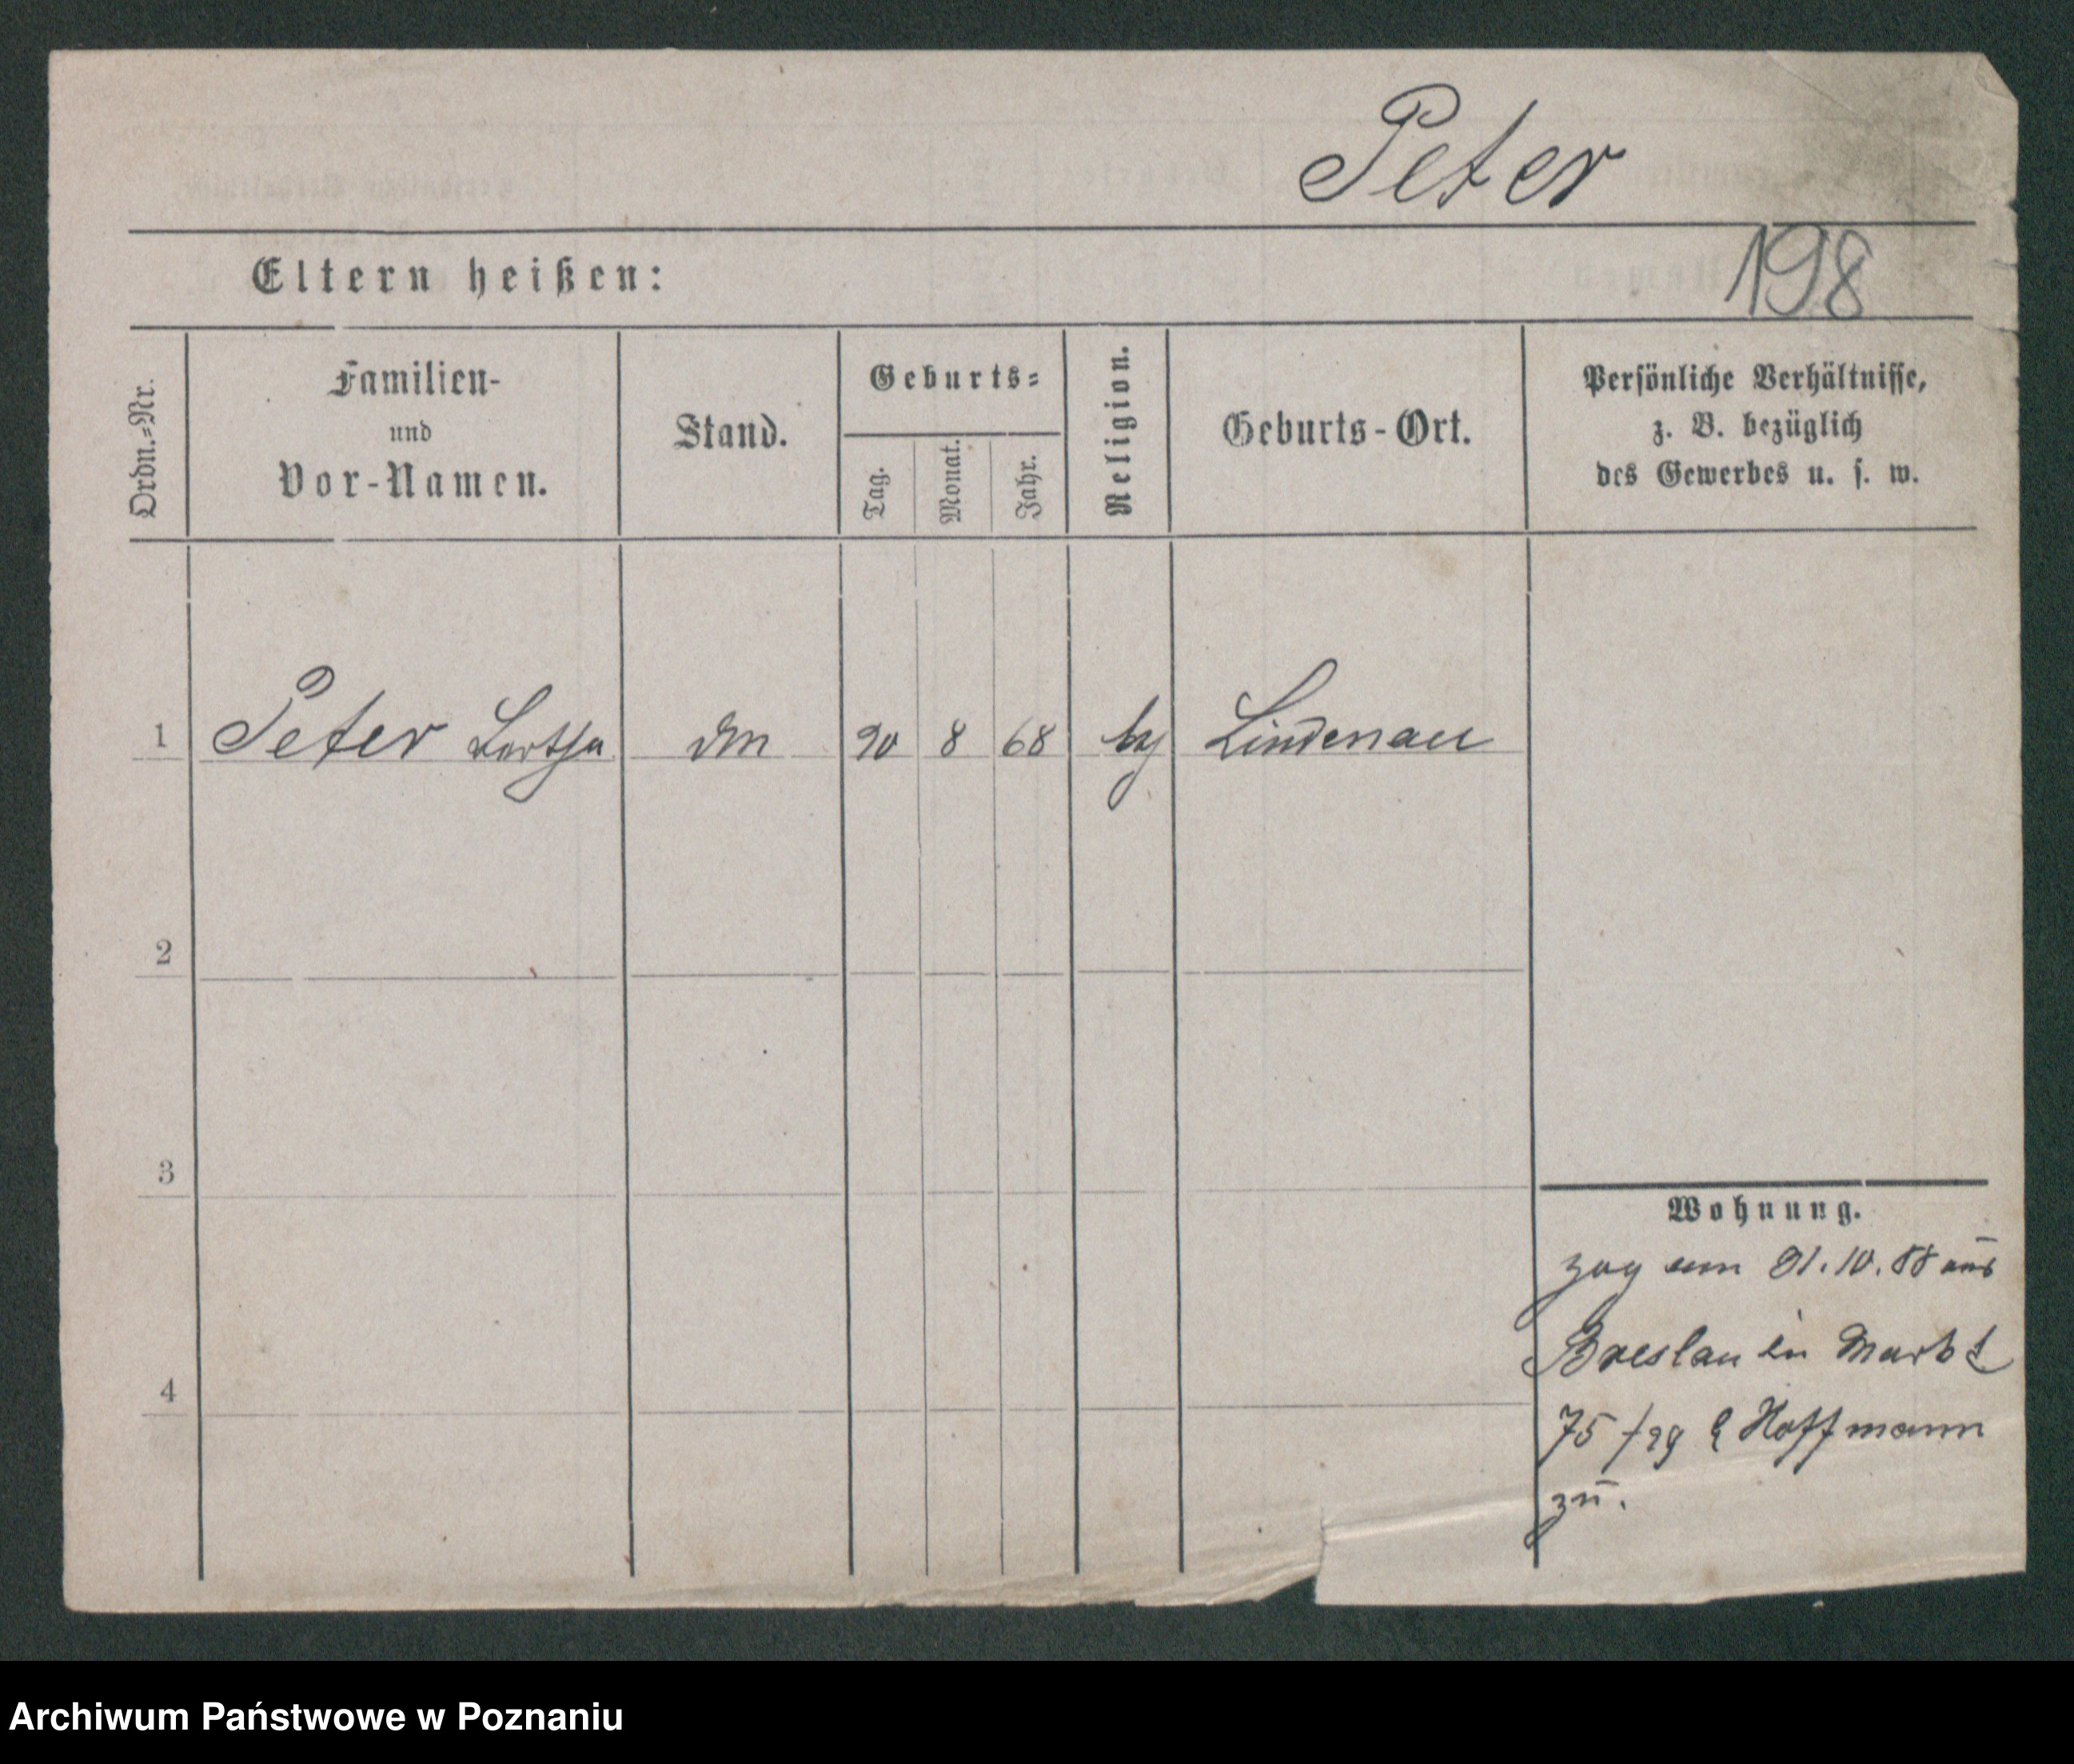 Peter
198
Eltern heißen:
Ordn.=Nr.
Familien-
und
Vor-Namen.
Stand.
Geburts=
Tag.
Monat.
Jahr.
Religion.
Geburts-Ort.
Persönliche Verhältnisse,
z. B. bezüglich
des Gewerbes u. s. w.
1 Peter 8 68 Lindenau
2
3
4
Wohnung.
zog am 10. 88 aus
Breslau in Markt
75 Hoffmann
zu.
Archiwum Państwowe w Poznaniu